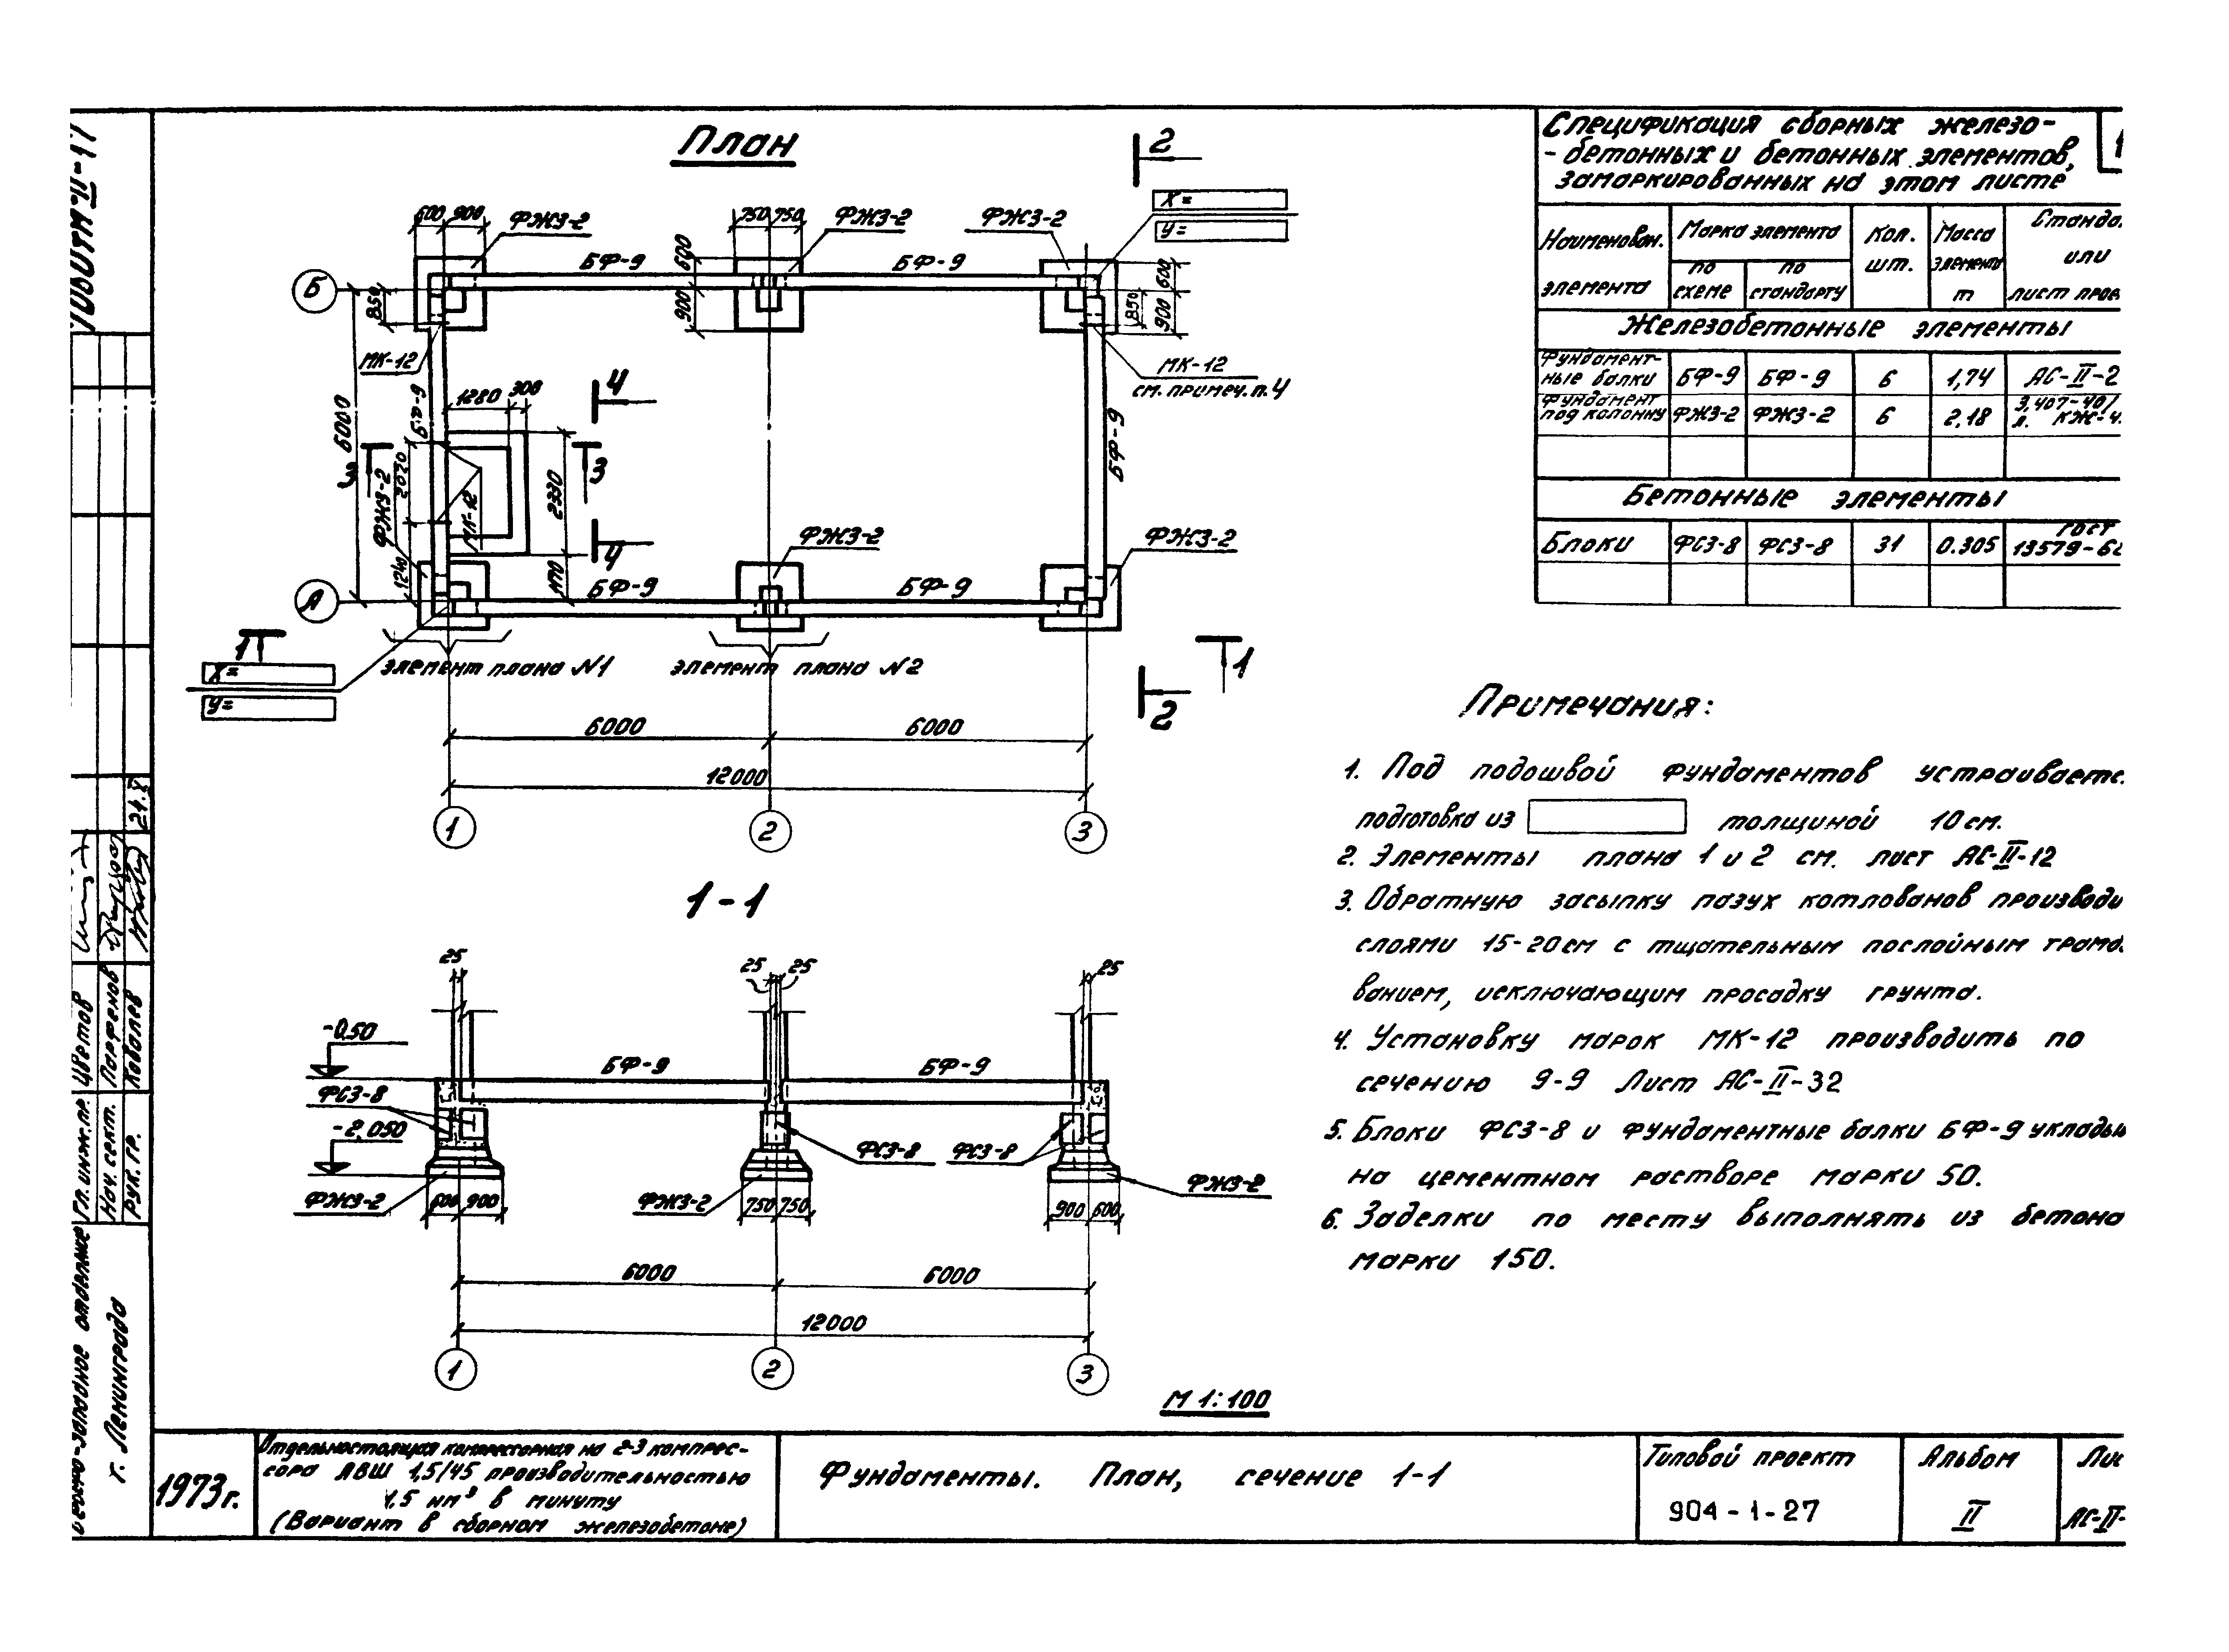 План
2
600 900
ФЖЗ-2
750 750
ФЖЗ-2
ФЖЗ-2
X=
У=
БФ-9
600
БФ-9
600
Б
850
900
850
900
МК-12
МК-12
см. примеч. п. 4
1280
300
4
6000
БФ-9
БФ-9
3
3
2020
ФЖЗ-2
МК-12
2330
4
ФЖЗ-2
ФЖЗ-2
1240
470
БФ-9
БФ-9
А
1
X=
У=
элемент плана N1
элемент плана N2
1
2
6000
6000
12000
1
2
3
1-1
25
25
25
25
-0.50
БФ-9
БФ-9
ФСЗ-8
-2.050
ФСЗ-8
ФСЗ-8
ФЖЗ-2
600 900
ФЖЗ-2
750 750
900 600
ФЖЗ-2
6000
6000
12000
1
2
3
М 1:100
Спецификация сборных железо-
- бетонных и бетонных элементов,
замаркированных на этом листе
1
Наименован. элемента
Марка элемента
по схеме
по стандарту
Кол. шт.
Масса элемента т
Станда.
или
лист прое
Железобетонные элементы
Фундамент-
ные балки БФ-9 БФ-9 6 1,74 АС-II-2
Фундамент
под колонну ФЖЗ-2 ФЖЗ-2 6 2,18 3.407-40/
л. КЖ-4.
Бетонные элементы
Блоки ФСЗ-8 ФСЗ-8 31 0.305 ГОСТ
13579-6
Примечания:
1. Под подошвой фундаментов устраиваетс.
подготовка из толщиной 10 см.
2. Элементы плана 1 и 2 см. лист АС-II-12
3. Обратную засыпку пазух котлованов производи
слоями 15-20 см с тщательным послойным трамб.
ванием, исключающим просадку грунта.
4. Установку марок МК-12 производить по
сечению 9-9 Лист АС-II-32
5. Блоки ФСЗ-8 и фундаментные балки БФ-9 укладыв
на цементном растворе марки 50.
6. Заделки по месту выполнять из бетона
марки 150.
Гл. инж. пр. Цветов
Нач. сект. Парфенов
Рук. гр. Ковалев
Северо-западное отделение
г. Ленинград
1973г.
Отдельностоящая компрессорная на 2-3 компрес-
сора АВШ 1,5/45 производительностью
1,5 нм³ в минуту
(Вариант в сборном железобетоне)
Фундаменты. План, сечение 1-1
Типовой проект
904-1-27
Альбом
II
Лис
АС-II-